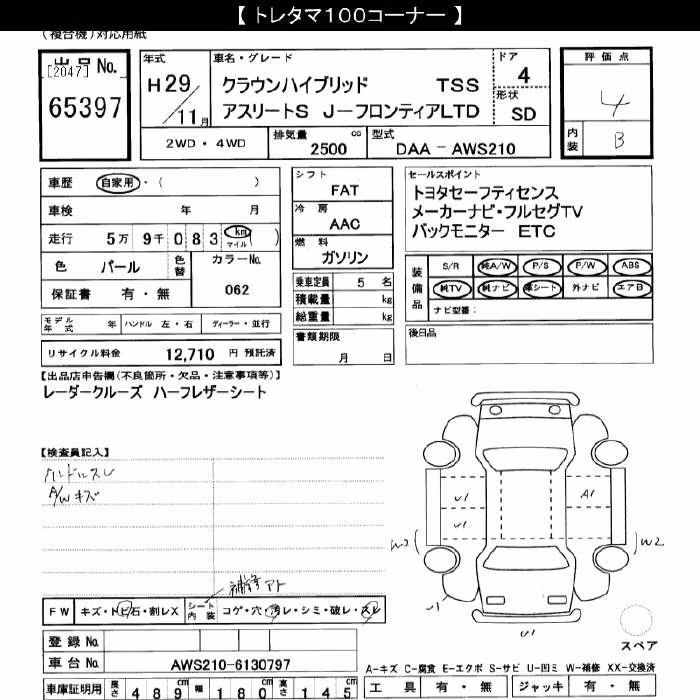 【 トレタマ100コーナー 】
(複合機)対応用紙
出品No.
[2047]
65397
年式
H29/11月
車名・グレード
クラウンハイブリッド TSS
アスリートS J-フロンティアLTD
ドア
4
形状
SD
評価点
4
内装
B
2WD・4WD
排気量 cc
2500
型式
DAA-AWS210
車歴 自家用・( )
車検 年 月
走行 5万9千083 km マイル ( )
色 パール
色替
カラーNo.
062
保証書 有・無
モデル年式 年 ハンドル 左・右 ディーラー・並行
リサイクル料金 12,710 円 預託済
シフト
FAT
冷房
AAC
燃料
ガソリン
乗車定員 5 名
積載量 kg
総重量 kg
書類期限
月 日
セールスポイント
トヨタセーフティセンス
メーカーナビ・フルセグTV
バックモニター ETC
装備品
S/R 純A/W P/S P/W ABS
純TV 純ナビ 革シート 外ナビ エアB
ナビ型番:
後日品
【出品店申告欄(不良箇所・欠品・注意事項等)】
レーダークルーズ ハーフレザーシート
【検査員記入】
ハンドルスレ
A/Wキズ
補修アト
FW キズ・トビ石・割レX
シート内装 コゲ・穴・汚レ・シミ・破レ・スレ
登録No.
車台No. AWS210-6130797
車庫証明用 長さ 489cm 幅 180cm 高さ 145cm
U1
U1
A1
W3
W2
U1
U1
スペア
A-キズ C-腐食 E-エクボ S-サビ U-凹ミ W-補修 XX-交換済
工具 有・無 ジャッキ 有・無